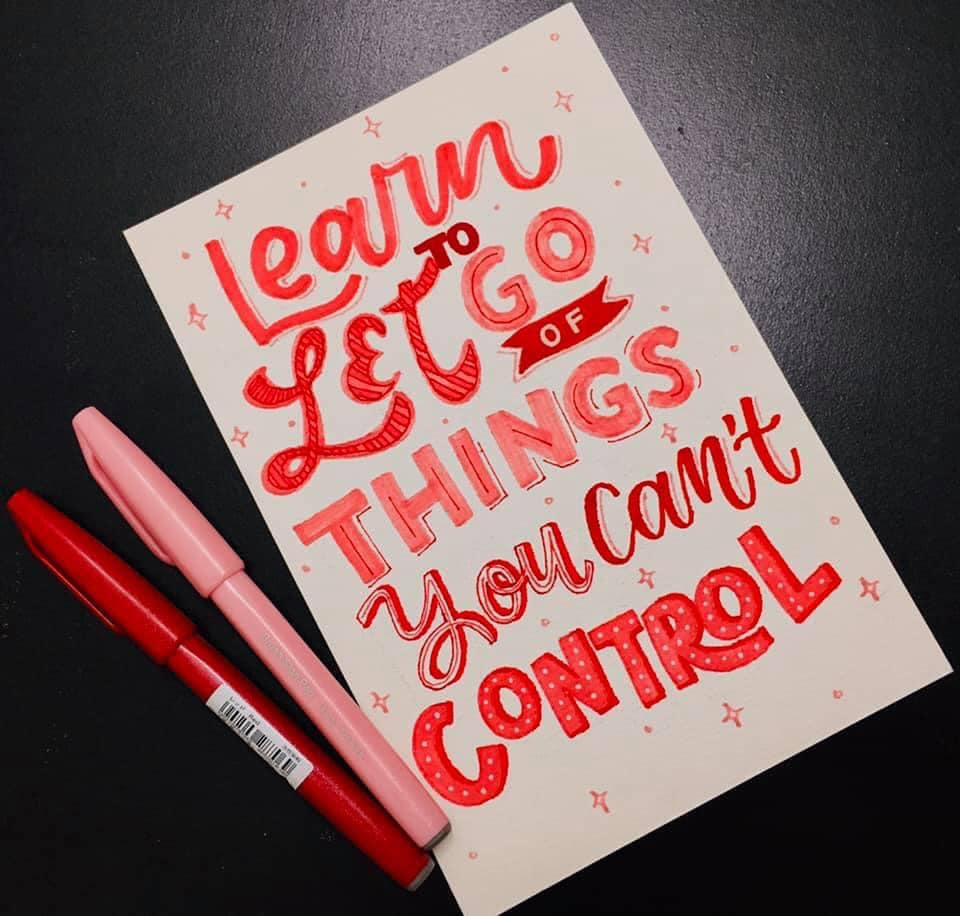 Learn
TO
LET GO
OF
THINGS
You can't
CONTROL